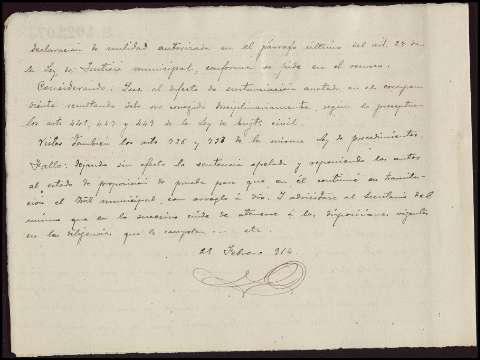 declaración de nulidad autorizada en el párrafo último del art. 29 de
la Ley de Justicia municipal, conforme se pide en el recurso.
Considerando: Que el defecto de sustanciación anotado en el correspon
diente resultando debe ser corregido disciplinariamente, según lo preceptua
los arts 441, 443 y 449 de la Ley de Enjto civil.
Vistos también los arts 736 y 738 de la misma Ley de procedimientos.
Fallo: dejando sin efecto la sentencia apelada y reponiendo los autos
al estado de proposición de prueba para que en él continúe su tramita-
ción el Tbal municipal, con arreglo a Dro. Y adviértase al Secretario del
mismo que en lo sucesivo cuide de atenerse á las disposiciones vigentes
en las diligencias que le competen ... etc.
28 Febrero 914.